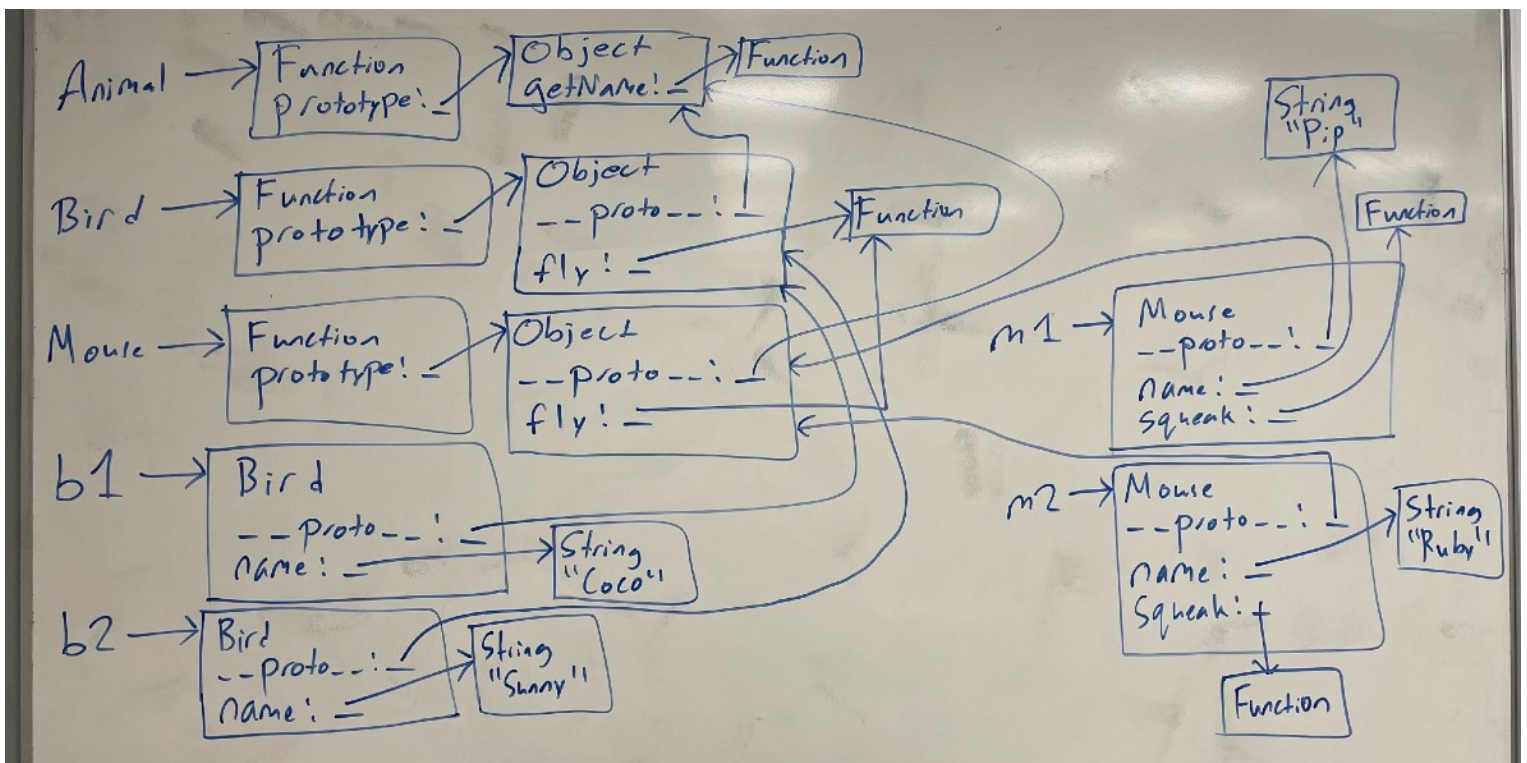 Animal
Function
prototype: _
Object
getName: _
Function
Bird
Function
prototype: _
Object
__proto__: _
fly: _
Function
Mouse
Function
prototype: _
Object
__proto__: _
fly: _
b1
Bird
__proto__: _
name: _
String
"Coco"
b2
Bird
__proto__: _
name: _
String
"Sunny"
String
"Pip"
Function
m1
Mouse
__proto__: _
name: _
squeak: _
m2
Mouse
__proto__: _
name: _
Squeak: _
String
"Ruby"
Function